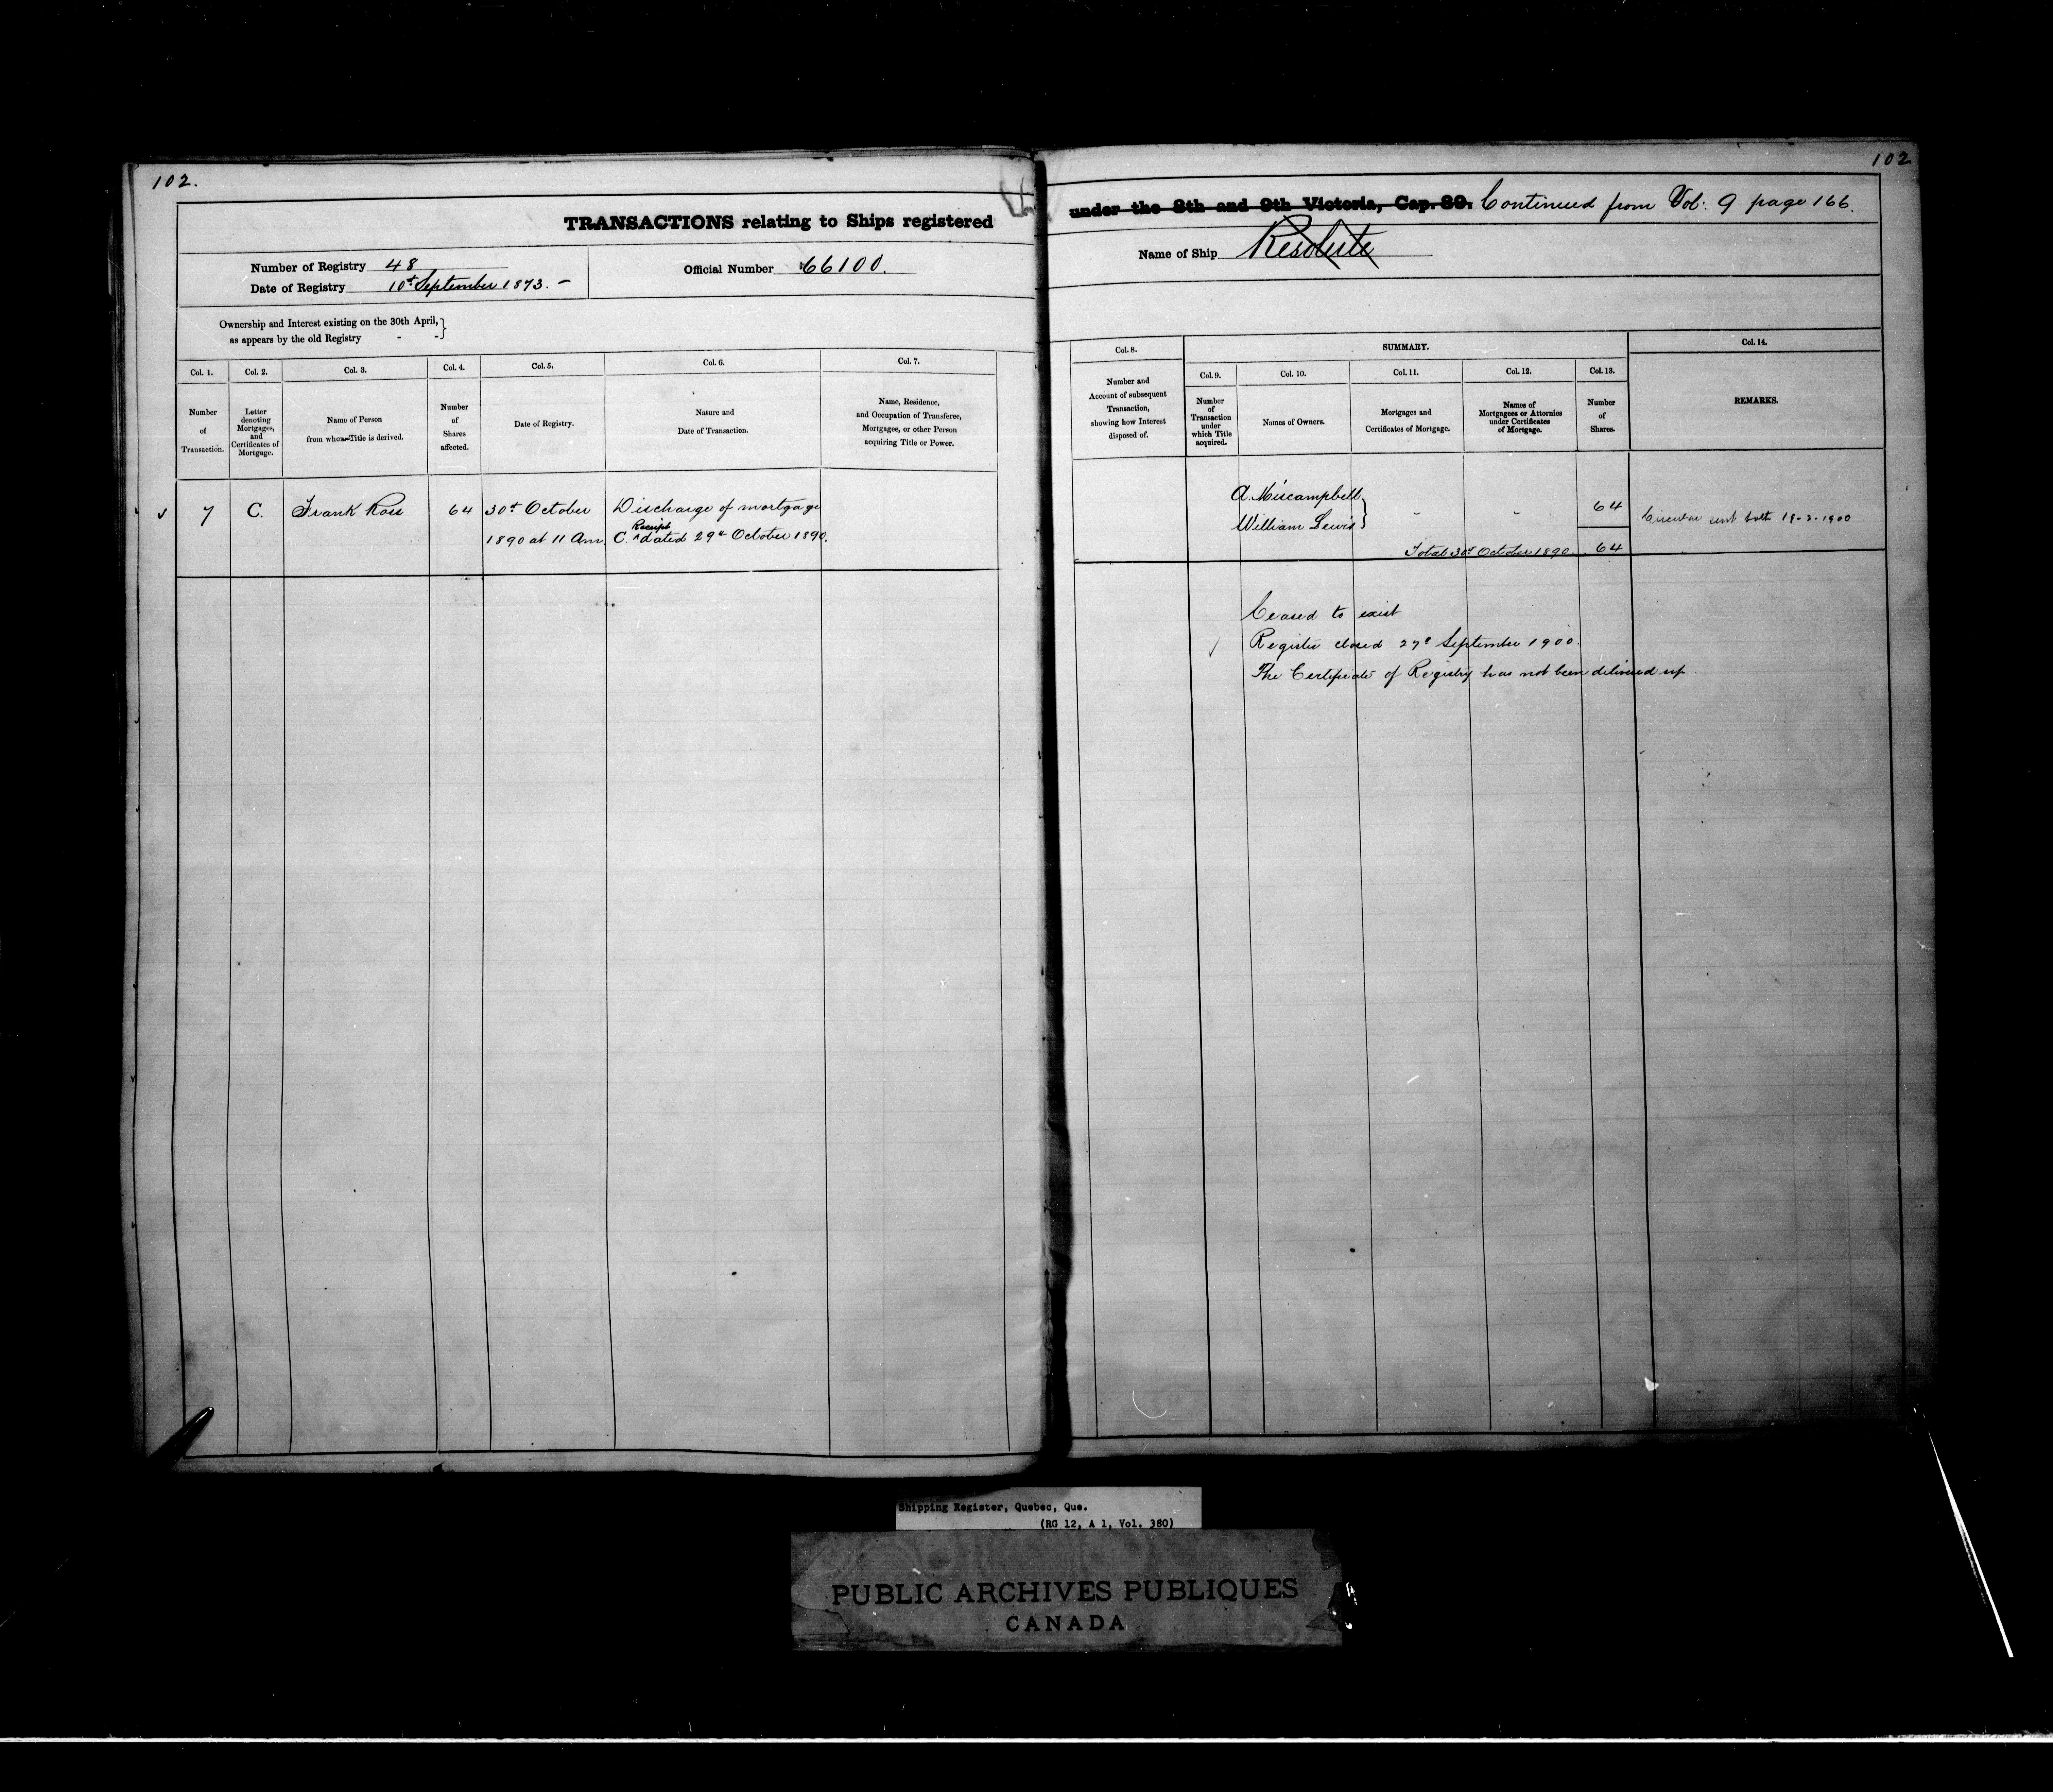 102.
102
TRANSACTIONS relating to Ships registered under the 8th and 9th Victoria, Cap. 89. Continued from Vol: 9 page 166.
Number of Registry 48
Date of Registry 10th September 1873. —
Official Number 66100.
Name of Ship Resolute
Ownership and Interest existing on the 30th April, }
as appears by the old Registry - -
Col. 1.
Number
of
Transaction.
Col. 2.
Letter
denoting
Mortgages,
and
Certificates of
Mortgage.
Col. 3.
Name of Person
from whom Title is derived.
Col. 4.
Number
of
Shares
affected.
Col. 5.
Date of Registry.
Col. 6.
Nature and
Date of Transaction.
Col. 7.
Name, Residence,
and Occupation of Transferee,
Mortgagee, or other Person
acquiring Title or Power.
Col. 8.
Number and
Account of subsequent
Transaction,
showing how Interest
disposed of.
SUMMARY.
Col. 9.
Number
of
Transaction
under
which Title
acquired.
Col. 10.
Names of Owners.
Col. 11.
Mortgages and
Certificates of Mortgage.
Col. 12.
Names of
Mortgagees or Attornies
under Certificates
of Mortgage.
Col. 13.
Number
of
Shares.
Col. 14.
REMARKS.
7
C.
Frank Ross
64
30th October
1890 at 11 Am.
Discharge of mortgage
C. Receipt dated 29th October 1890.
A. Miscampbell
William Lewis }
" "
64
Total 30th October 1890. 64
Circular sent both 19-3-1900
Ceased to exist
Register closed 27th September 1900.
The Certificate of Registry has not been delivered up.
Shipping Register, Quebec, Que.
(RG 12, A 1, Vol. 380)
PUBLIC ARCHIVES PUBLIQUES
CANADA